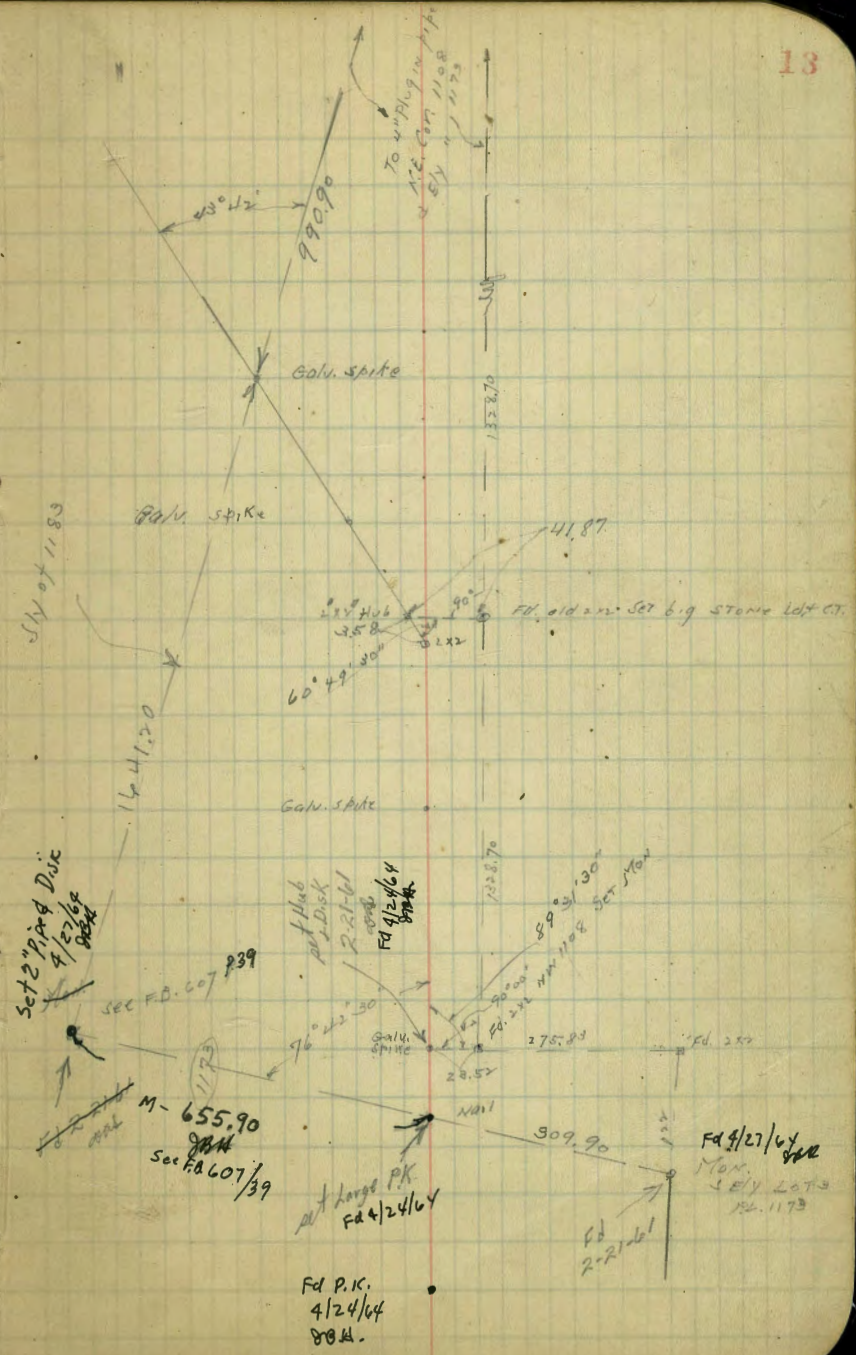 13
To 4" Plug in pipe
N.E. Cor. 1108
S'ly " 1173
43° 42'
990.90
Galv. spike
1328.70
Galv. spike
41.87
S'ly of 1183
2"x2" Hub
3.58
90°
Fd. old 2x2" Set big stone
2x2
60° 49' 30"
1641.20
Galv. spike
1328.70
Set 2" Pipe & Disk
4/27/64
JBH
set Hub
& Disk
2-21-61
Fd 4/24/64
JBH
89° 31' 30"
90° 00"
Fd. 2x2 NW 1108 Set Mon
See F.B. 607 P39
76° 42' 30"
Galv.
spike
275.83
Fd. 2x2
28.52
1173
M- 655.90
JBH
See F.B. 607/39
Nail
309.90
Fd 4/27/64
JBH
Mon.
SE'ly Lot 3
1173
set Large P.K.
Fd 4/24/64
Fd
2-21-61
Fd P.K.
4/24/64
JBH.